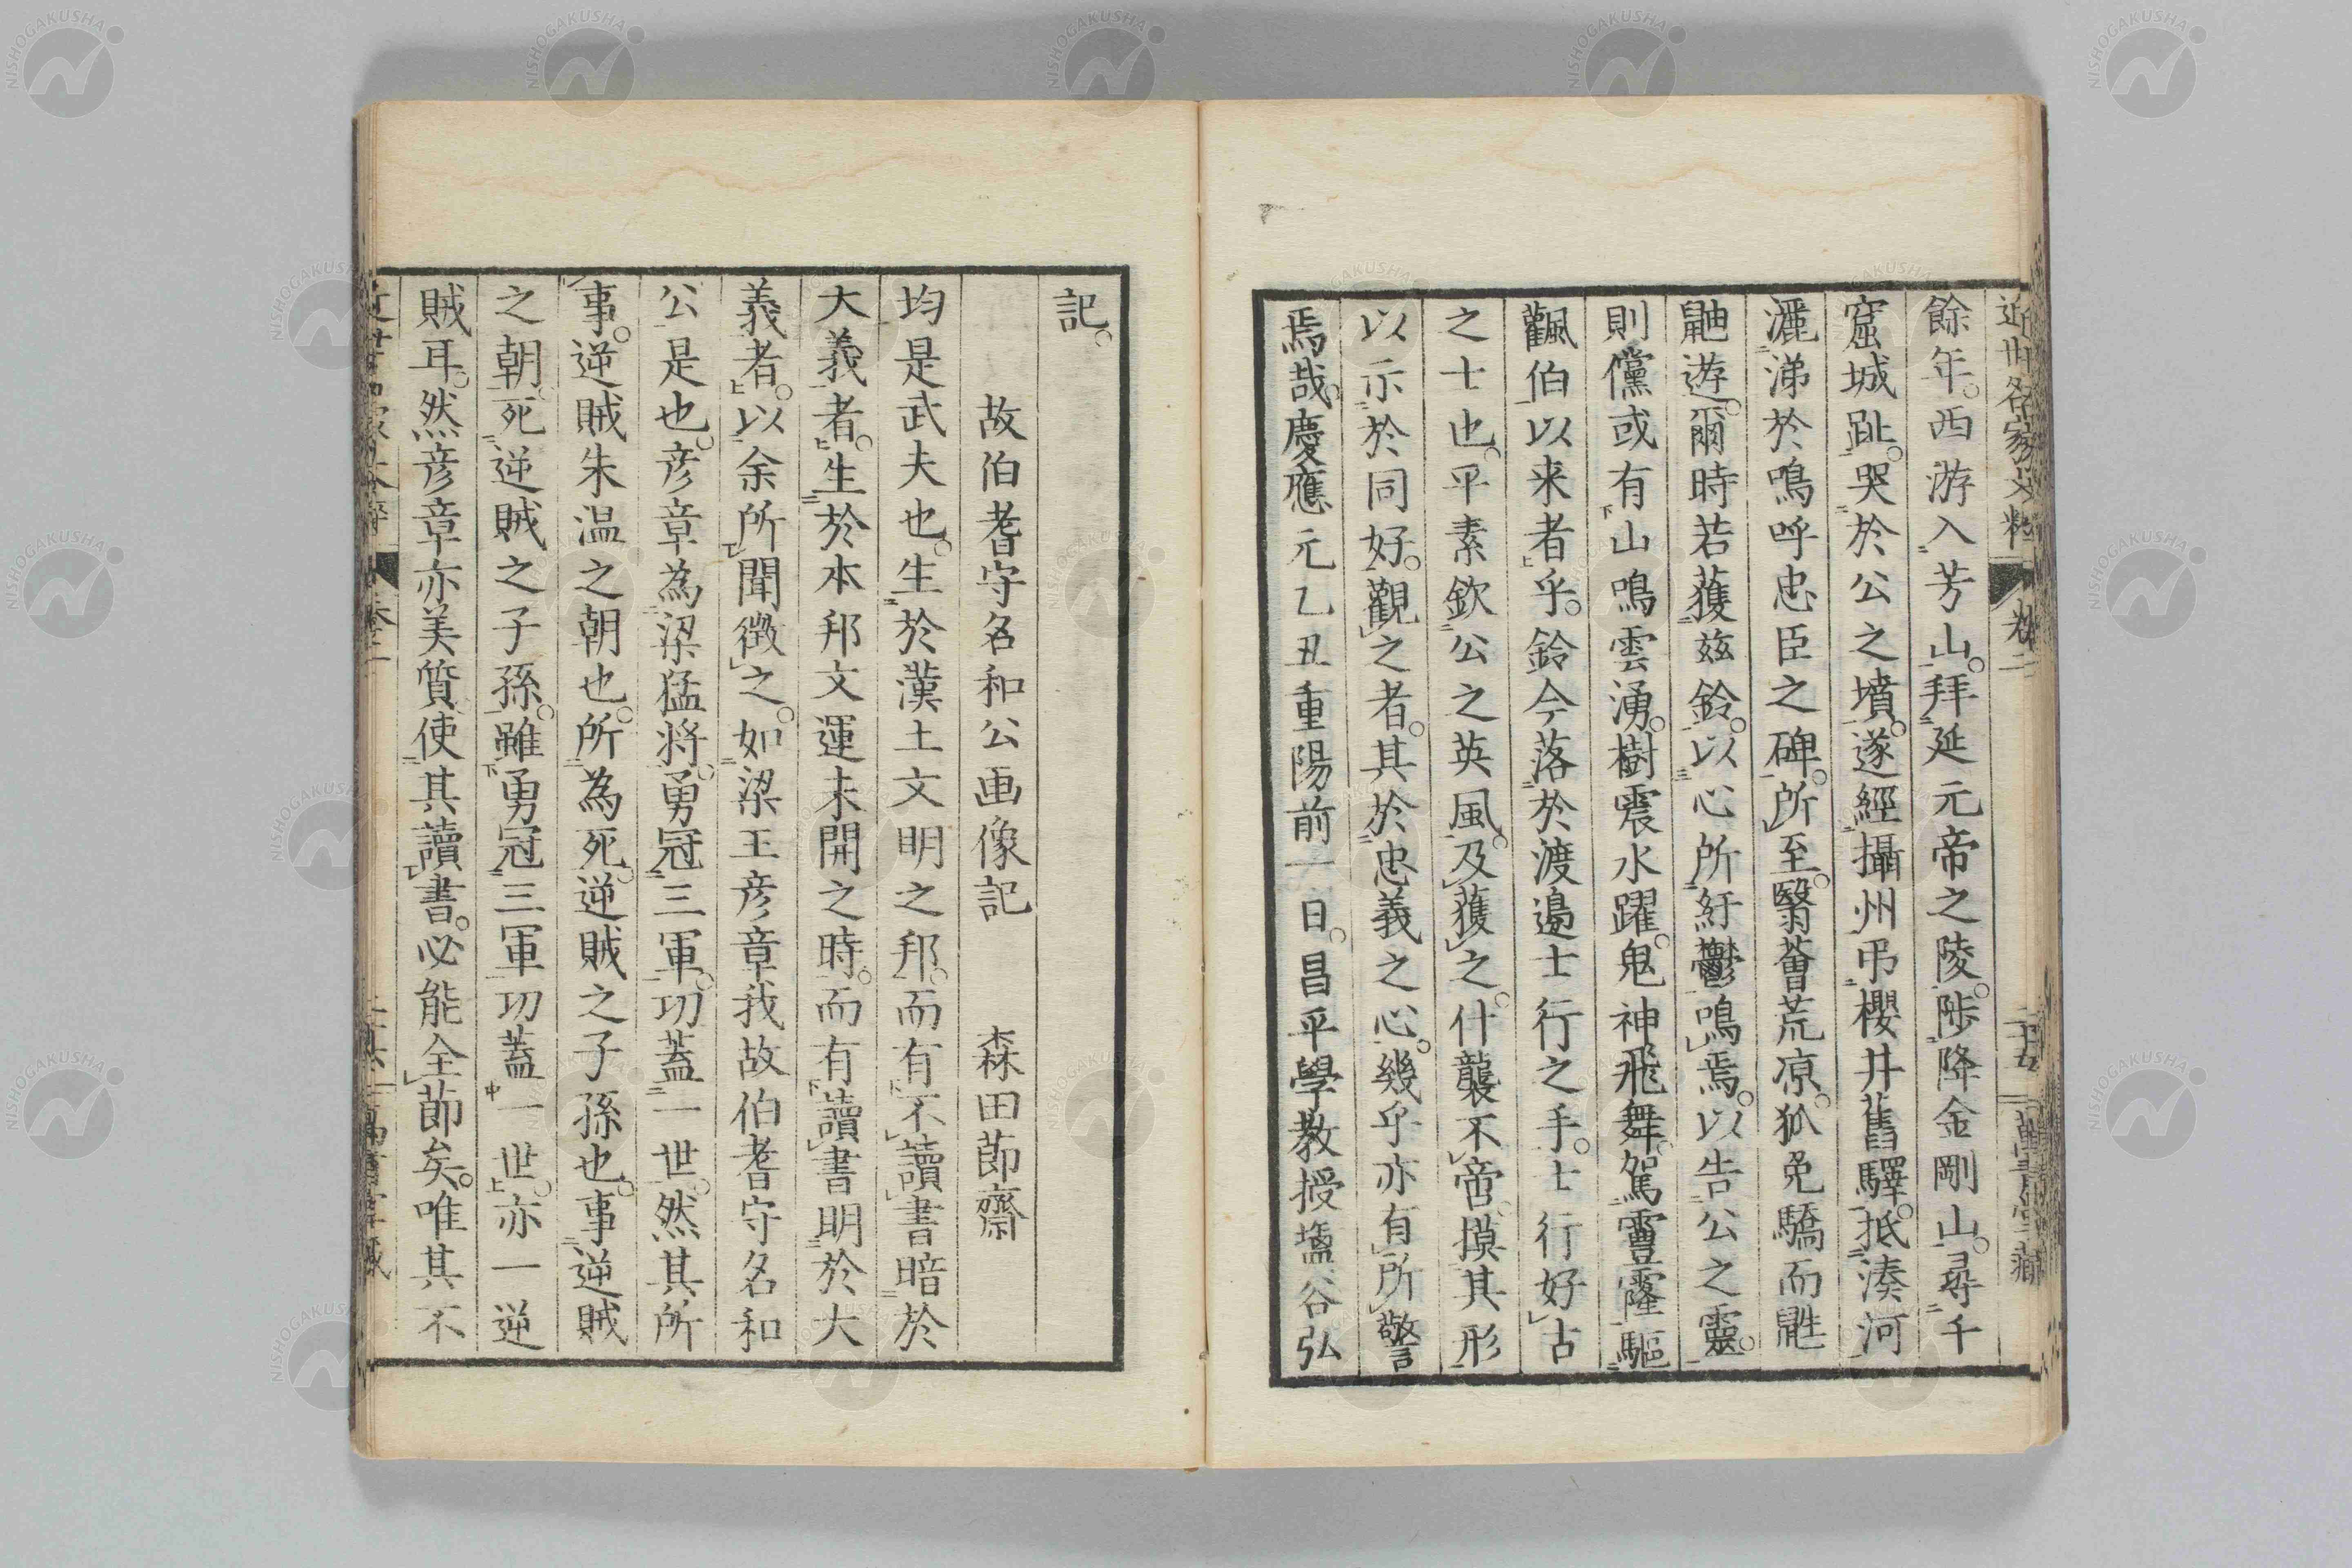 近世名家文粹 卷二 二十五 萬書堂藏
餘年。西游入芳山。拜延元帝之陵。陟降金剛山。尋千
窟城趾。哭於公之墳。遂經攝州弔櫻井舊驛。抵湊河
灑涕於嗚呼忠臣之碑。所至。翳薈荒凉。狐兔驕而鼪
鼬遊。爾時若獲玆鈴。以心所紆鬱鳴焉。以告公之靈。
則儻或有山鳴雲湧。樹震水躍。鬼神飛舞。駕䨓霳驅
飌伯以来者乎。鈴今落於渡邉士行之手。士行好古
之士也。平素欽公之英風。及獲之。什襲不啻。摸其形
以示於同好。觀之者。其於忠義之心。幾乎亦有所警
焉哉。慶應元乙丑重陽前一日。昌平學教授塩谷弘
記。
故伯耆守名和公画像記 森田節齋
均是武夫也。生於漢土文明之邦。而有不讀書暗於
大義者。生於本邦文運未開之時。而有讀書明於大
義者。以余所聞徴之。如梁王彦章我故伯耆守名和
公是也。彦章為梁猛将。勇冠三軍。功蓋一世。然其所
事。逆賊朱温之朝也。所為死。逆賊之子孫也。事逆賊
之朝。死逆賊之子孫。雖勇冠三軍功蓋一世。亦一逆
賊耳。然彦章亦美質。使其讀書。必能全節矣。唯其不